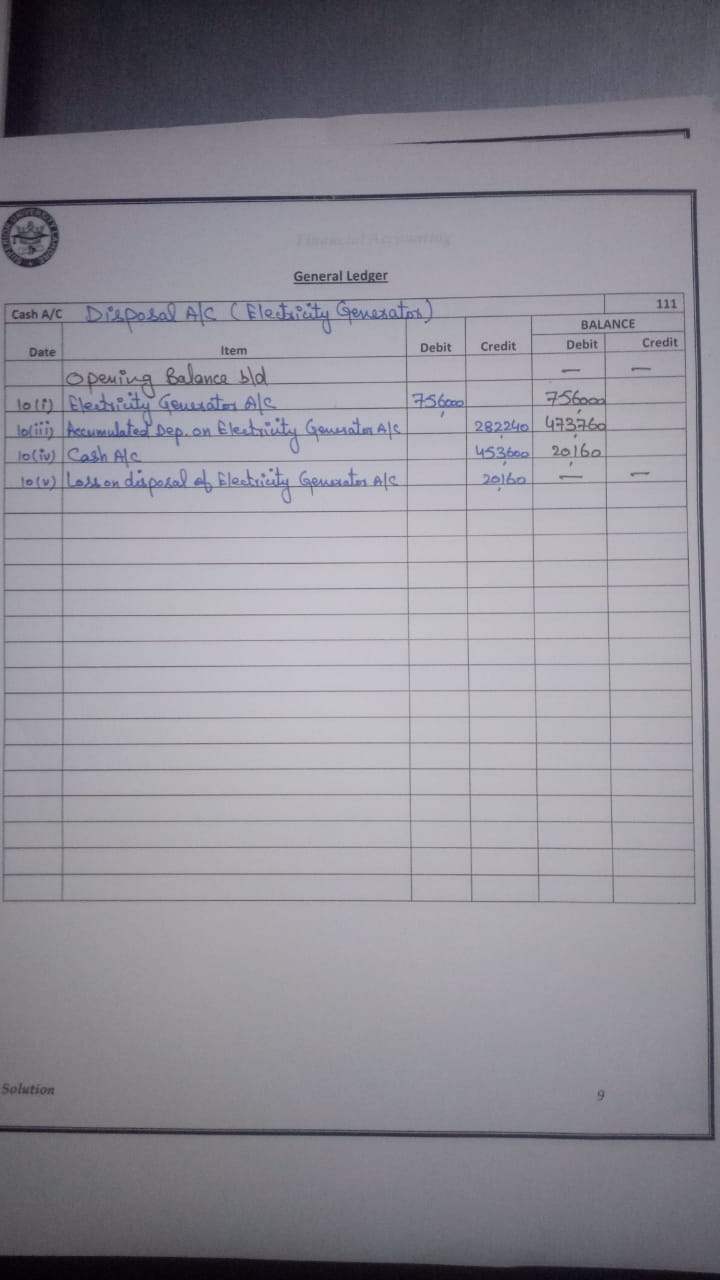 Financial Accounting
General Ledger
Cash A/C Disposal A/C (Electricity Generator) 111
BALANCE
Date Item Debit Credit Debit Credit
Opening Balance b/d — —
10(i) Electricity Generator A/C 756000 756000
10(iii) Accumulated Dep. on Electricity Generator A/C 282240 473760
10(iv) Cash A/C 453600 20160
10(v) Loss on disposal of Electricity Generator A/C 20160 — —
Solution 9